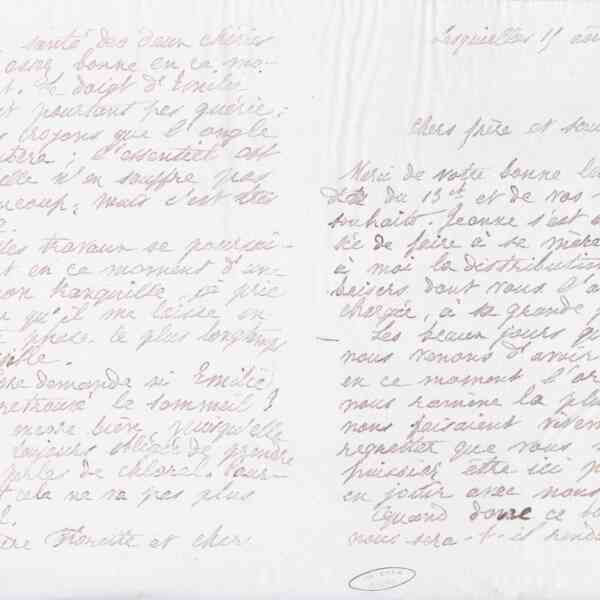 santé des deux chères
assez bonne en ce mo-
t. Le doigt d'Emilie
t pourtant pas guérie;
s croyons que l'ongle
bera; l'essentiel est
elle n'en souffre pas
ucoup; mais c'est très
les travaux se poursui-
t en ce moment d'un
on tranquille. Je prie
qu'il me laisse en
phase le plus longtemps
demande si Emilie
retrouvé le sommeil?
bien, puisqu'elle
toujours obligée de prendre
perles de chloral. Pour-
t cela ne va pas plus
Florette et cher
Lesquielles 15 aoû
Chers frère et soeu
Merci de votre bonne le
du 13 ct et de vos
souhaits. Jeanne s'est
de faire à sa mère
à moi la distribution
baisers dont vous l'a
chargée, à sa grande
Les beaux jours qu
nous venons d'avoir
en ce moment l'or
nous ramène la plu
nous faisaient vivem
regretter que vous
puissiez être ici p
en jouir avec nous
Quand donc ce bo
nous sera-t-il rendu